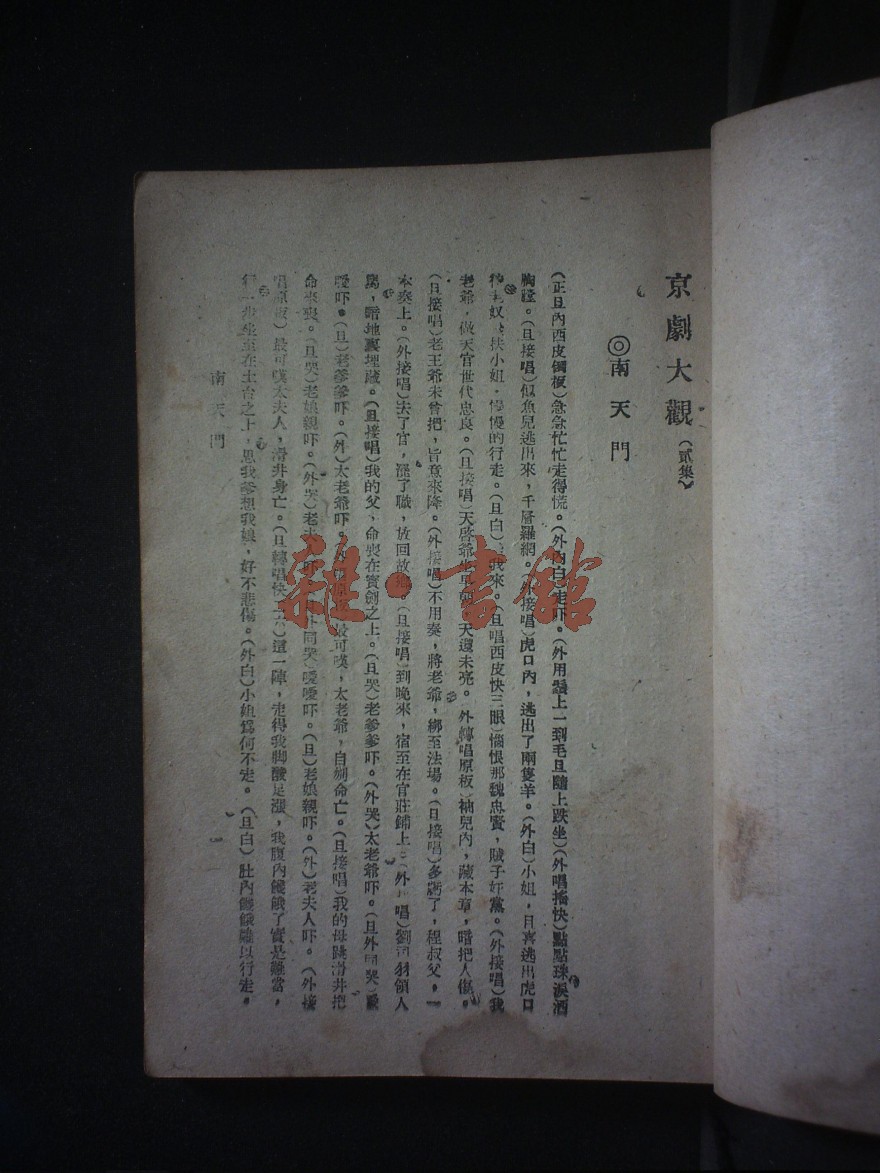 京劇大觀（貳集）
◎南天門
（正旦內西皮倒板）急急忙忙走得慌。（外內白）走吓。（外用鬚上一到毛旦隨上跌坐）（外唱搖快）點點珠淚洒
胸膛。（旦接唱）似魚兒逃出來，千層羅網。外接唱）虎口內，逃出了兩隻羊。（外白）小姐，且喜逃出虎口
待老奴扶小姐，慢慢的行走。（旦白）我來。（旦唱西皮快三眼）惱恨那魏忠賢，賊子奸黨。（外接唱）我
老爺，做天官世代忠良。（旦接唱）天啓爺坐早朝，天還未亮。外轉唱原板）袖兒內，藏本章，暗把人傷。
（旦接唱）老王爺未曾把，旨意來降。（外接唱）不用奏，將老爺，綁至法場。（旦接唱）多虧了，程叔父，一
本奏上。（外接唱）去了官，罷了職，放回故（旦接唱）到晚來，宿至在官莊鋪上（外 唱）劉司 領人
馬，暗地裏埋藏。（旦接唱）我的父，命喪在寶劍之上。（旦哭）老爹爹吓。（外哭）太老爺吓。（旦外同哭）噯
噯吓。（旦）老爹爹吓。（外）太老爺吓。最可嘆，太老爺，自刎命亡。（旦接唱）我的母跳滑井把
命來喪。（旦哭）老娘親吓。（外哭）老夫人吓。外同哭）噯噯吓。（旦）老娘親吓。（外）老夫人吓。（外接
唱原板）最可嘆太夫人，滑井身亡。（旦轉唱快二六）這一陣，走得我脚酸足漲，我腹內饑餓了實是難當，
行一步坐至在土台之上，思我爹想我娘，好不悲傷。（外白）小姐爲何不走。（旦白）肚內饑餓難以行走。
南天門
雜·書館